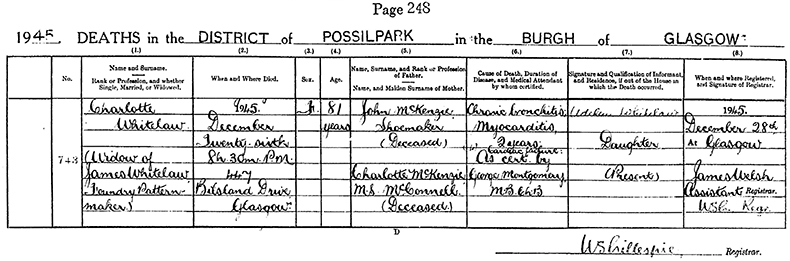 Page 248
1945. DEATHS in the DISTRICT of POSSILPARK in the BURGH of GLASGOW
(1.) (2.) (3.) (4.) (5.) (6.) (7.) (8.)
No.
Name and Surname.
Rank or Profession, and whether
Single, Married, or Widowed.
When and Where Died.
Sex.
Age.
Name, Surname, and Rank or Profession
of Father.
Name, and Maiden Surname of Mother.
Cause of Death, Duration of
Disease, and Medical Attendant
by whom certified.
Signature and Qualification of Informant,
and Residence, if out of the House in
which the Death occurred.
When and where Registered,
and Signature of Registrar.
743
Charlotte
Whitelaw
(Widow of
James Whitelaw
Foundry Pattern-
maker)
1945.
December
Twenty-sixth
8h. 30m. P.M.
447
Bilsland Drive
Glasgow
81
years
John McKenzie
Shoemaker
(Deceased)
Charlotte McKenzie
M.S. McConnell
(Deceased)
Chronic bronchitis,
Myocarditis,
2 years
Cardiac failure.
As cert. by
George Montgomary
M.B. Ch.B
Whitelaw
Daughter
(Present)
1945.
December 28th
At Glasgow
James Welsh
Assistant Registrar.
W.S.G. Regr.
D
W S Gillespie Registrar.